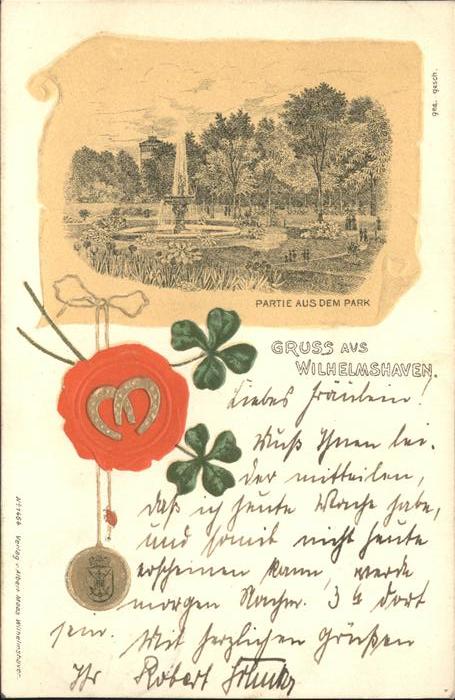 ges. gesch.
PARTIE AUS DEM PARK
GRUSS AUS
WILHELMSHAVEN.
Liebes Fräulein!
Muß Ihnen lei-
der mitteilen,
daß ich heute Wache habe,
und somit nicht heute
erscheinen kann, werde
morgen Nachm. 3 dort
sein. Mit herzlichen Grüßen
Ihr Robert
Nº 7454 Verlag v. Albert Maas Wilhelmshaven.